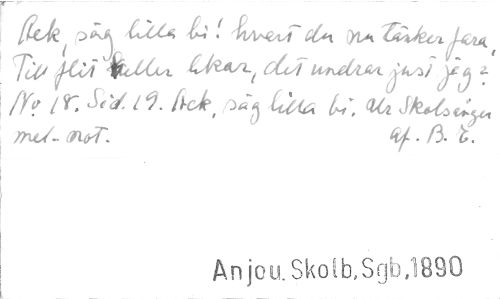 Ack, säg lilla bi! hvart du nu tänker fara,
Till flit eller lekar, det undrar just jag?
No 18. Sid. 19. Ack, säg lilla bi. Ur Skolsånger
mel. not. af. B. E.
Anjou. Skolb, Sgb, 1890